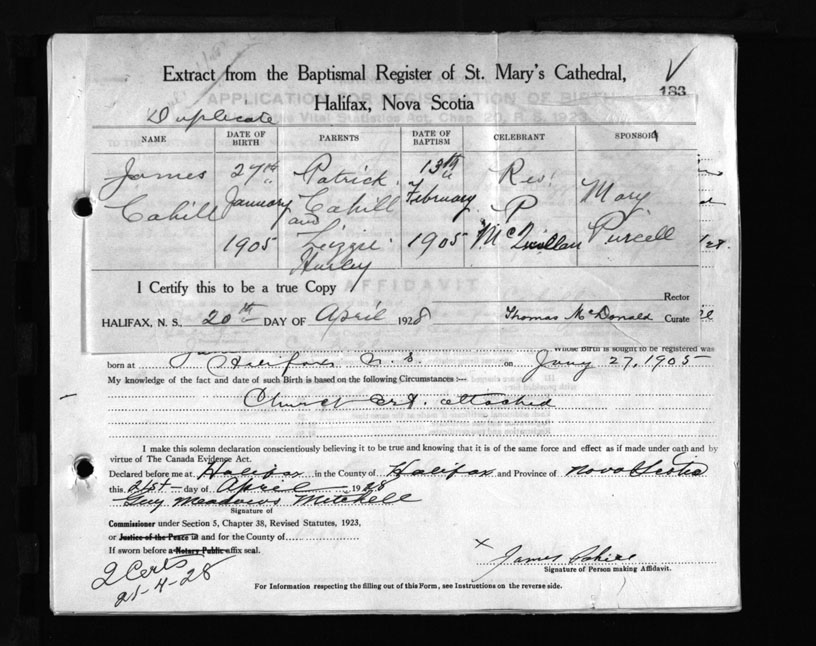 Extract from the Baptismal Register of St. Mary's Cathedral,
133
Halifax, Nova Scotia
APPLICATION FOR REGISTRATION OF BIRTH
Duplicate
Vital Statistics Act, Chap. 20, R. S. 1923
NAME DATE OF BIRTH PARENTS DATE OF BAPTISM CELEBRANT SPONSOR
James 27th Patrick 13th Rev.
Cahill January Cahill February P Mary
and
1905 Lizzie 1905 McQuillan Purcell
Hurley
I Certify this to be a true Copy
AFFIDAVIT
Rector
HALIFAX, N. S. 20th DAY OF April 1928 Thomas McDonald Curate
Whose Birth is sought to be registered was
born at Halifax N. S. on Jany 27, 1905
My knowledge of the fact and date of such Birth is based on the following Circumstances :--
Church Cert. attached
I make this solemn declaration conscientiously believing it to be true and knowing that it is of the same force and effect as if made under oath and by
virtue of The Canada Evidence Act.
Declared before me at Halifax in the County of Halifax and Province of Nova Scotia
this 21st day of April 1928
Guy Meadows Mitchell
Signature of
Commissioner under Section 5, Chapter 38, Revised Statutes, 1923,
or Justice of the Peace in and for the County of
If sworn before a Notary Public affix seal.
x James Cahill
Signature of Person making Affidavit.
2 Certs
21-4-28
For Information respecting the filling out of this Form, see Instructions on the reverse side.